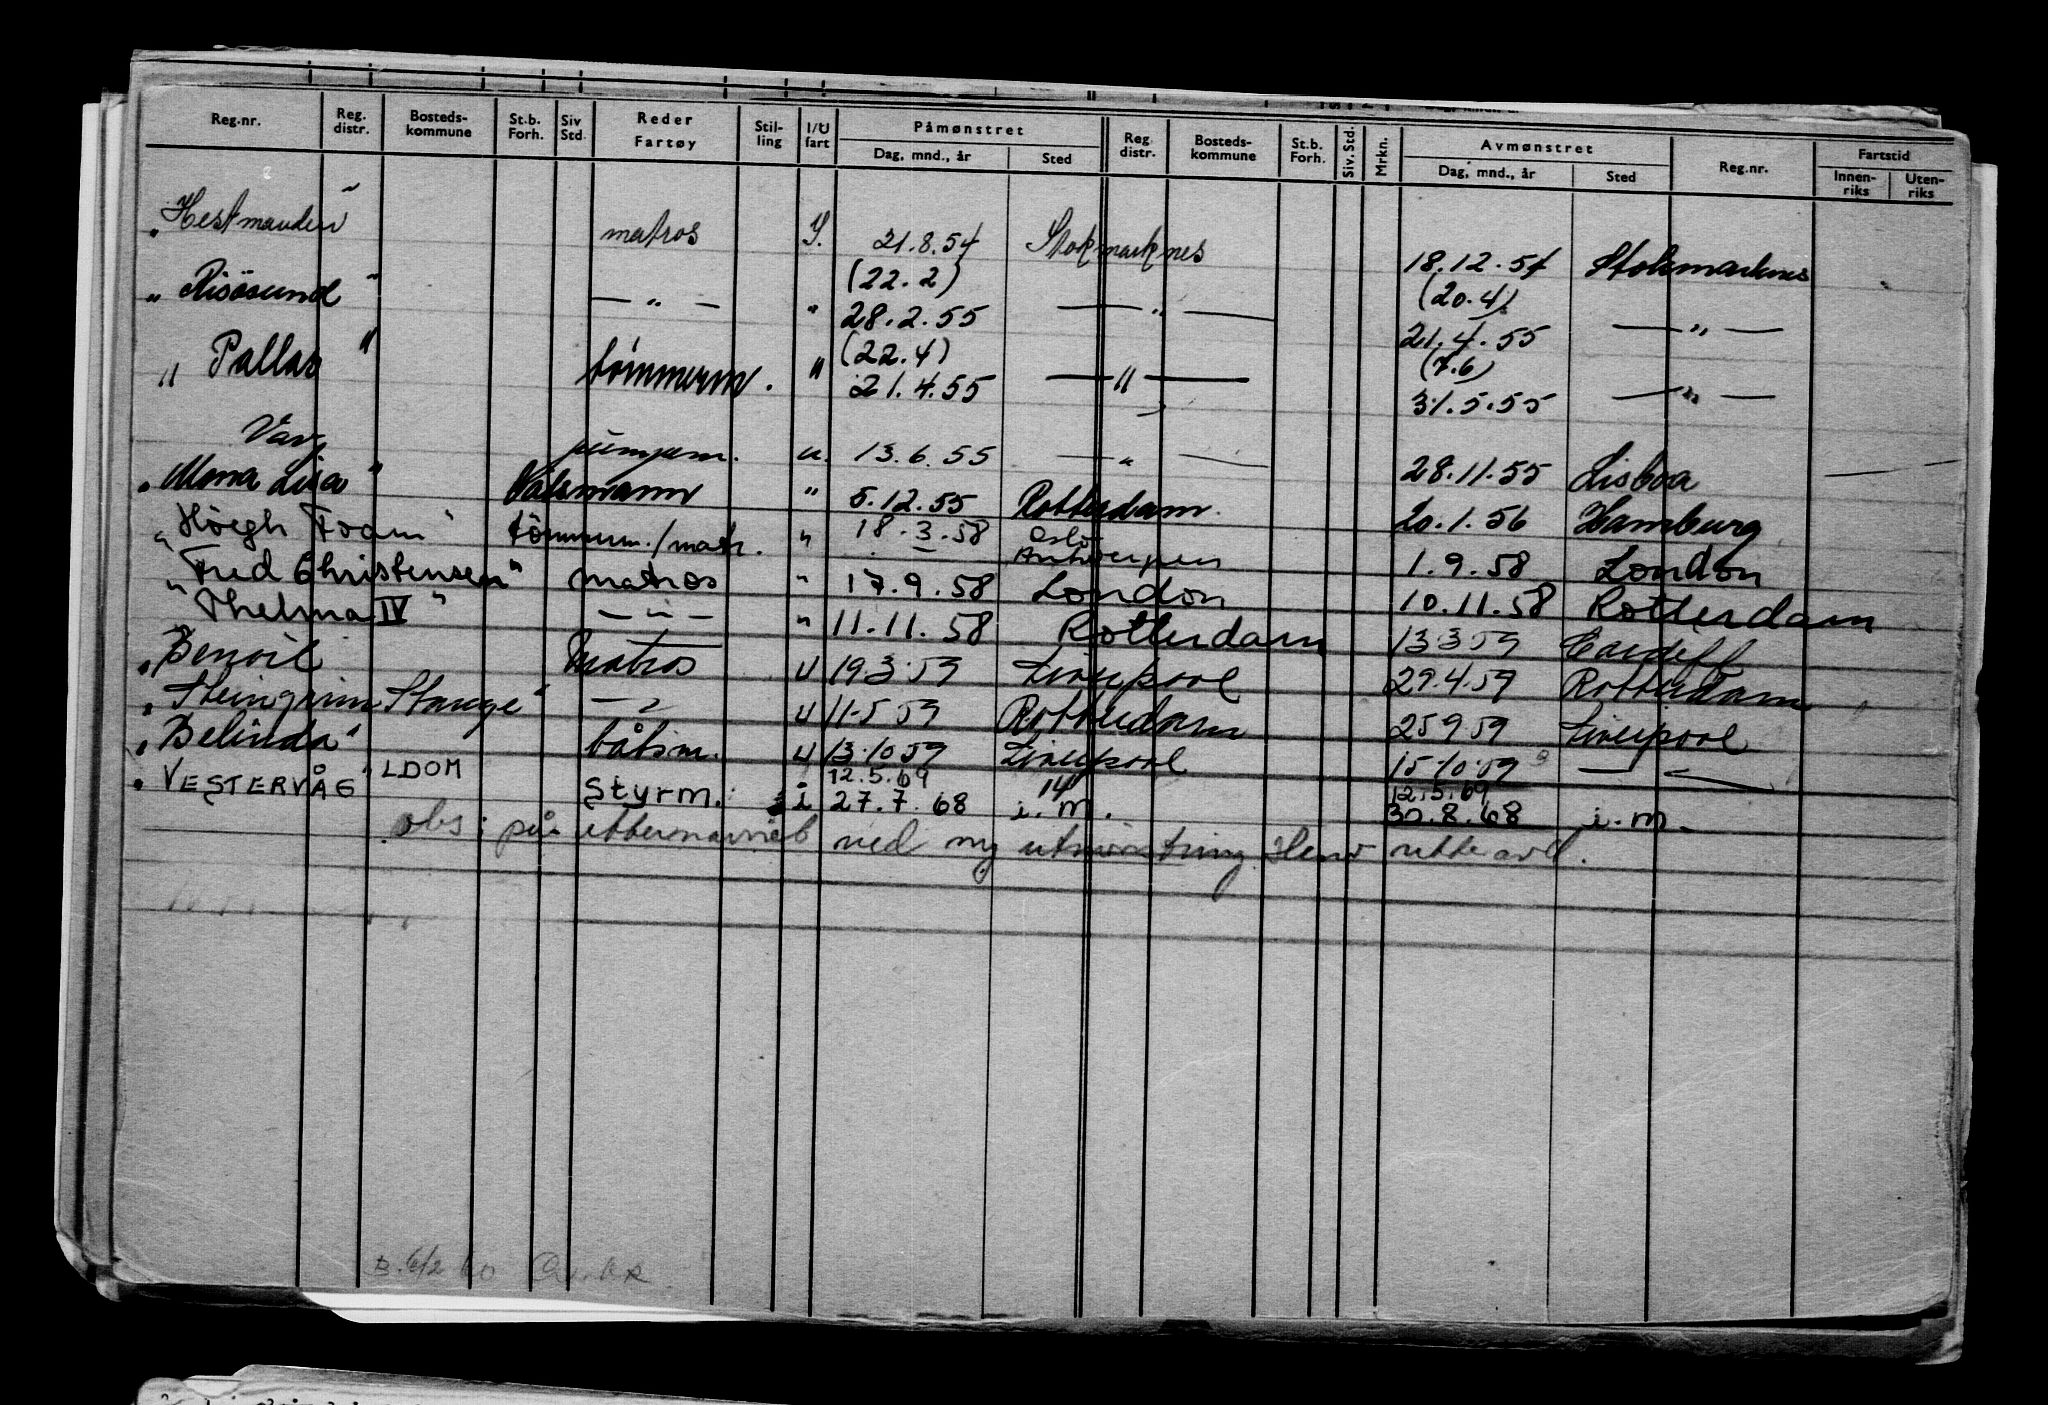 Reg.nr. Reg. distr. Bosteds-kommune St.b. Forh. Siv Std. Reder Fartøy Stil-ling I/U fart Påmønstret Reg distr. Bosteds-kommune St.b. Forh. Siv. Std. Mrkn. Avmønstret Reg.nr. Fartstid
Dag, mnd., år Sted Dag, mnd., år Sted Innen-riks Uten-riks
"Hestmanden" matros I. 21.8.54 Stokmarknes 18.12.54 Stokmarknes
(22.2) (20.4)
"Risösund" — " — " 28.2.55 — " — 21.4.55 — " —
(22.4) (7.6)
"Pallas" tömmerm. " 21.4.55 — " — 31.5.55 — " —
Varg pumpem. u. 13.6.55 — " — 28.11.55 Lisboa
"Mona Lisa" Båtsmann " 5.12.55 Rotterdam. 20.1.56 Hamburg
"Höegh Foam" tömmerm./matr. " 18.3.58 Oslo Antwerpen 1.9.58 London
"Fred Christensen" matros " 17.9.58 London 10.11.58 Rotterdam
"Thelma IV" — " — " 11.11.58 Rotterdam 13 3 59 Cardiff
"Benoil Matros u 19.3.59 Liverpool 29.4.59 Rotterdam
"Steingrim Stange" — " — u 11.5 59 Rotterdam 25 9 59 Liverpool
"Belinda" båtsm. u 13.10 59 Liverpool 15.10.59 — " —
12.5.69 14 12.5.69
"VESTERVÅG" LDOM Styrm. i 27.7.68 i.m. 30.8.68 i.m.
obs: på etternavnet ved ny utmönstring
B. 6/2 60